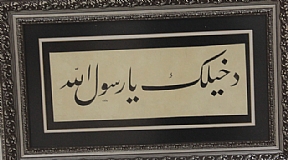 دخيلك يا رسول الله